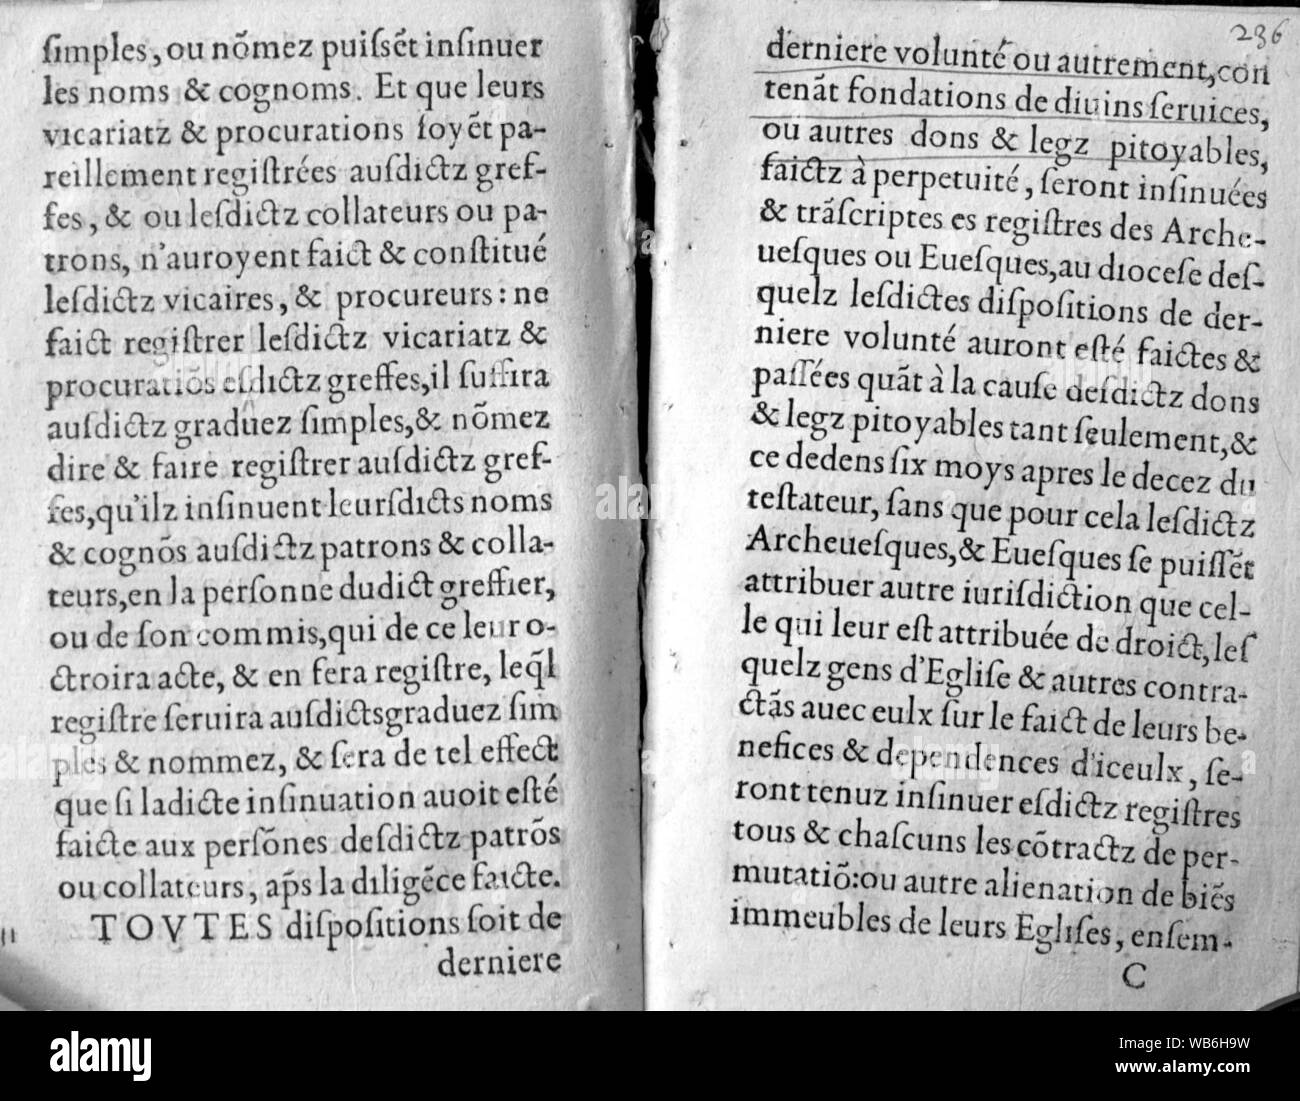 ſimples, ou nõmez puiſsẽt inſinuer
les noms & cognoms. Et que leurs
vicariatz & procurations ſoyẽt pa-
reillement regiſtrées auſdictz gref-
fes, & ou leſdictz collateurs ou pa-
trons, n'auroyent faict & conſtitué
leſdictz vicaires, & procureurs: ne
faict regiſtrer leſdictz vicariatz &
procuratiõs eſdictz greffes, il ſuffira
auſdictz graduez ſimples, & nõmez
dire & faire regiſtrer auſdictz gref-
fes, qu'ilz inſinuent leurſdicts noms
& cognõs auſdictz patrons & colla-
teurs, en la perſonne dudict greffier,
ou de ſon commis, qui de ce leur o-
ctroira acte, & en fera regiſtre, leq̃l
regiſtre ſeruira auſdictsgraduez ſim
ples & nommez, & ſera de tel effect
que ſi ladicte inſinuation auoit eſté
faicte aux perſõnes deſdictz patrõs
ou collateurs, ap̃s la diligẽce faicte.
TOVTES diſpoſitions ſoit de
derniere
236
derniere volunté ou autrement, con
tenãt fondations de diuins ſeruices,
ou autres dons & legz pitoyables,
faictz à perpetuité, ſeront inſinuées
& trãſcriptes es regiſtres des Arche-
ueſques ou Eueſques, au dioceſe deſ-
quelz leſdictes diſpoſitions de der-
niere volunté auront eſté faictes &
paſſées quãt à la cauſe deſdictz dons
& legz pitoyables tant ſeulement, &
ce dedens ſix moys apres le decez du
teſtateur, ſans que pour cela leſdictz
Archeueſques, & Eueſques ſe puiſſẽt
attribuer autre iuriſdiction que cel-
le qui leur eſt attribuée de droict, leſ
quelz gens d'Egliſe & autres contra-
ctãs auec eulx ſur le faict de leurs be-
nefices & dependences d'iceulx, ſe-
ront tenuz inſinuer eſdictz regiſtres
tous & chaſcuns les cõtractz de per-
mutatiõ: ou autre alienation de biẽs
immeubles de leurs Egliſes, enſem-
C
alamy
alamy
Image ID: WB6H9W
www.alamy.com